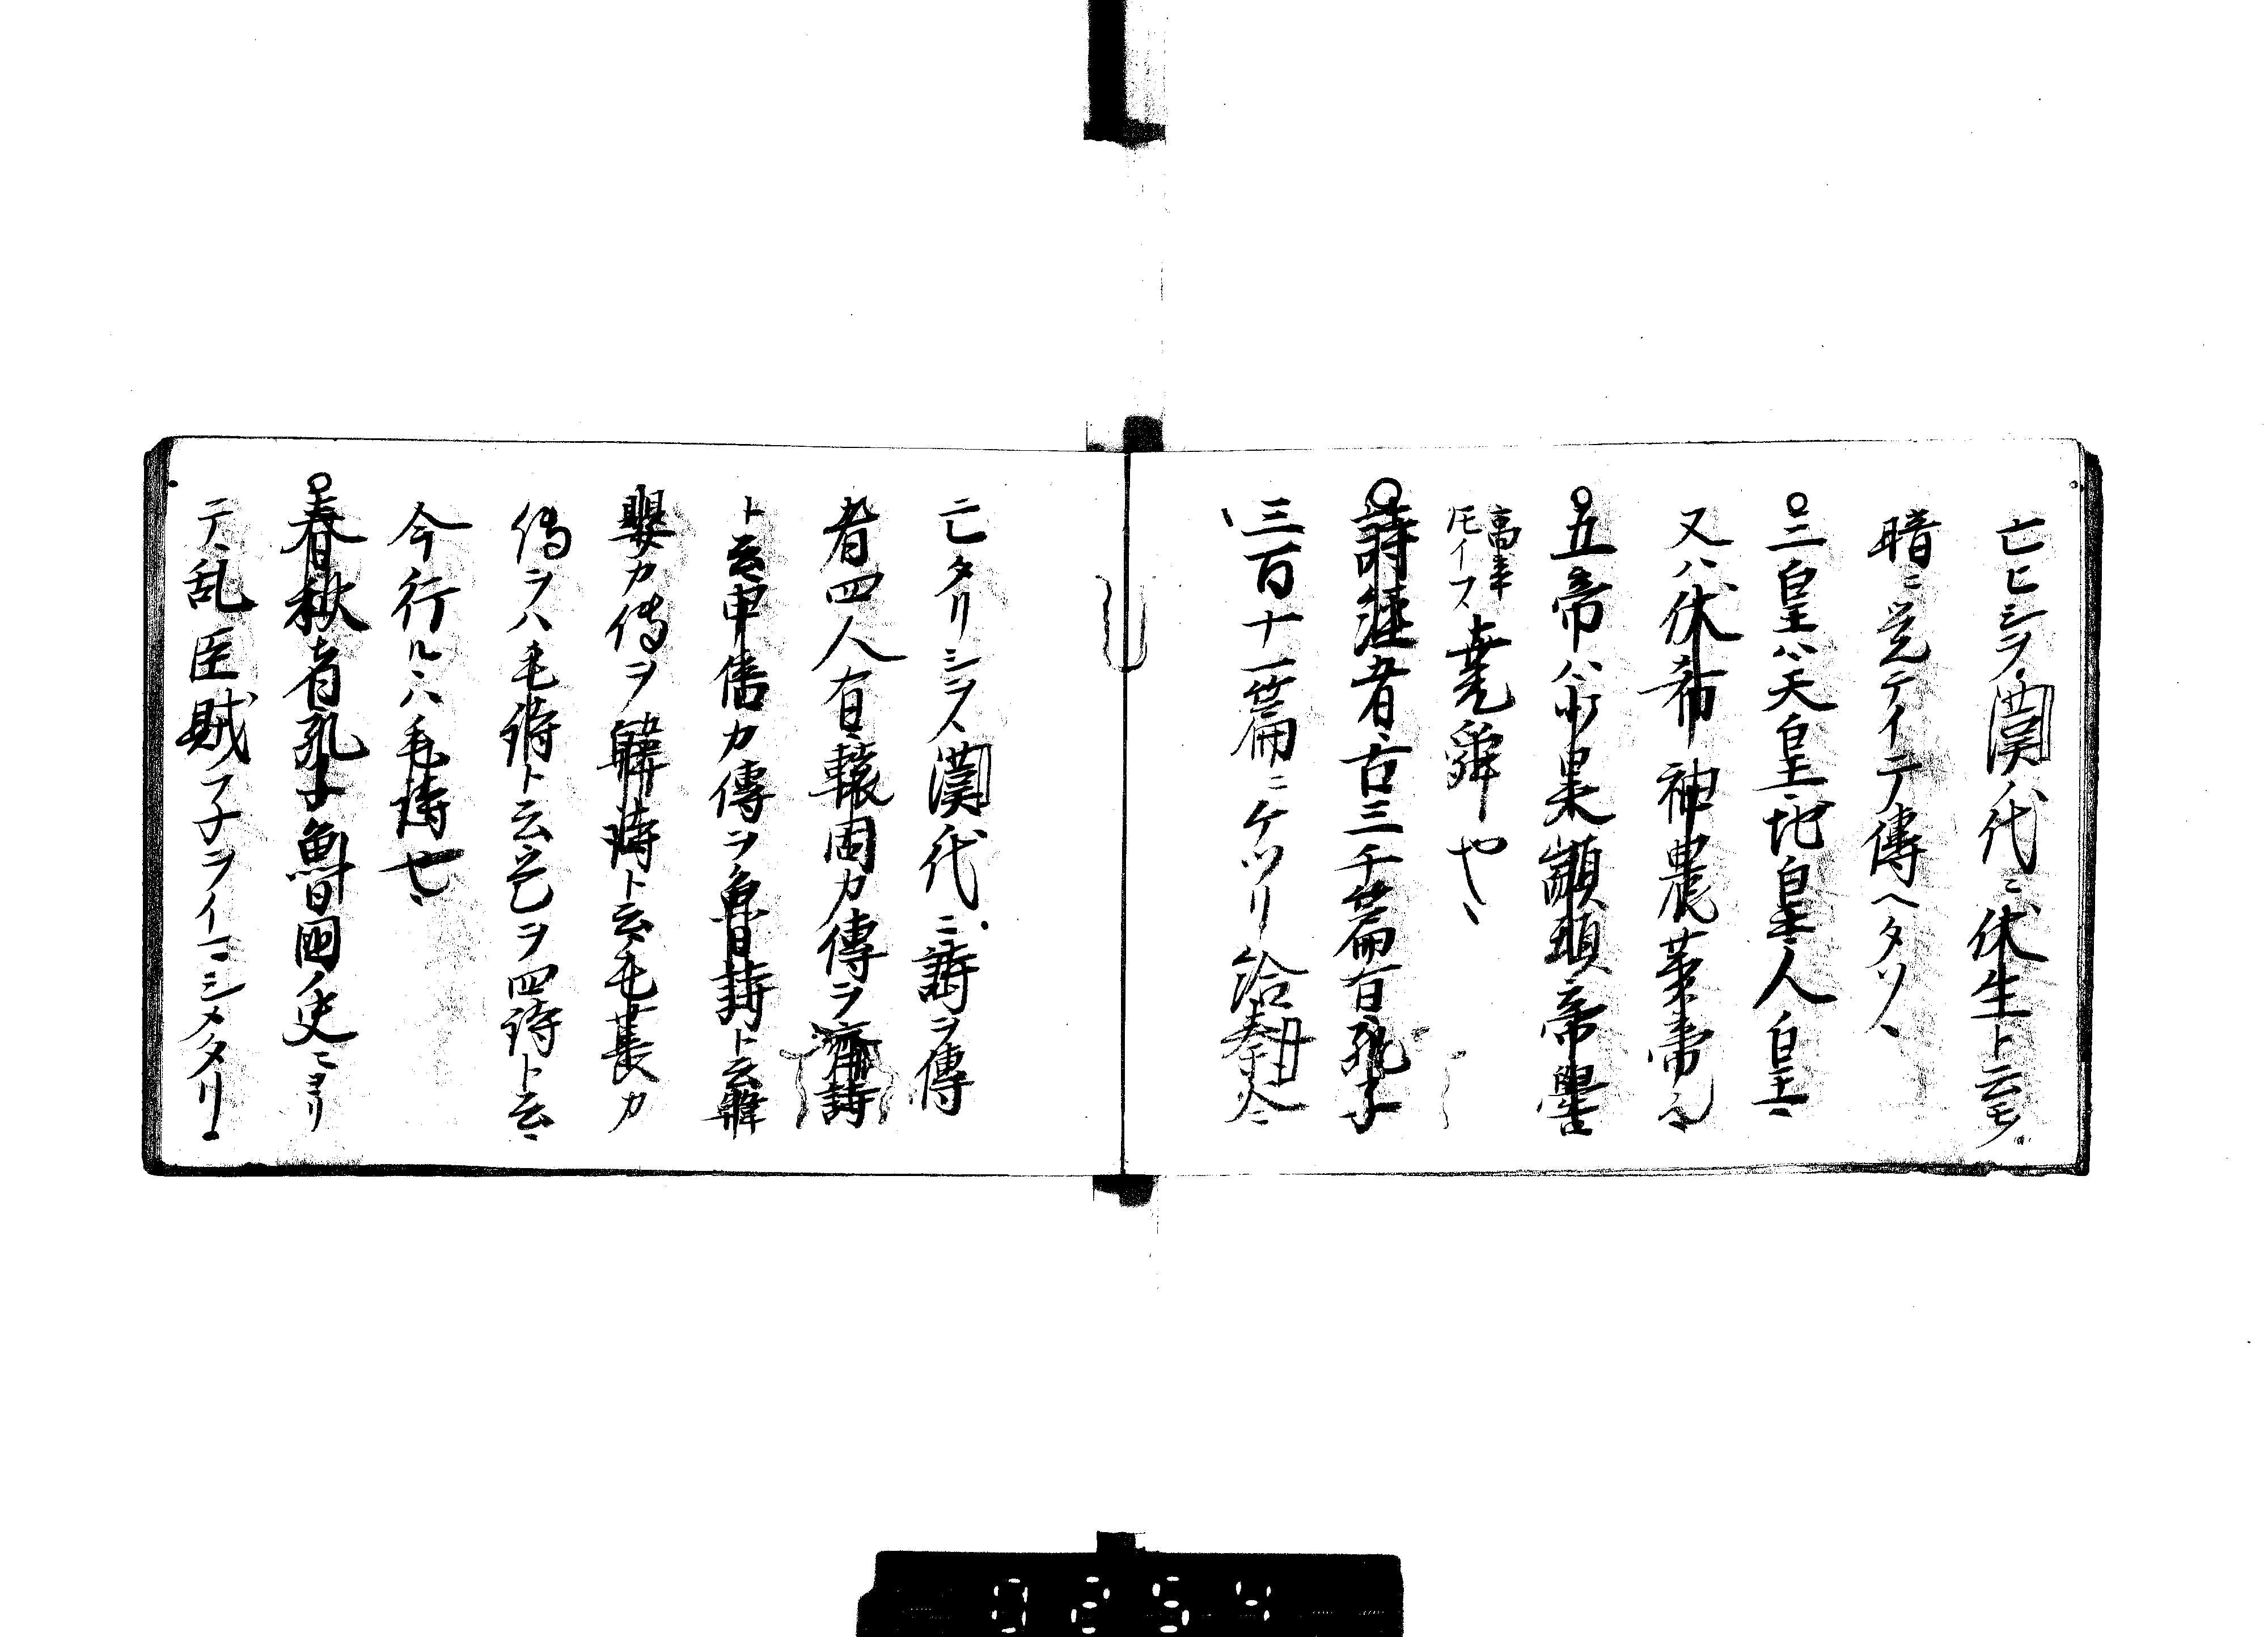 亡ヒシヲ漢代ニ伏生ト云モノ
暗ニ覚テイテ傳ヘタソ
三皇ハ天皇地皇人皇
又ハ伏希神農黄帝
五帝ハ少昊顓頊帝嚳
高辛
トモイフ
堯舜也
詩経者古三千篇有孔子
三百十一篇ニケツリ給秦火ニ
亡タリシヲ漢代ニ詩ヲ傳
者四人有轅固カ傳ヲ齊詩
ト云申倍カ傳ヲ魯詩ト云韓
嬰カ傳ヲ韓詩ト云毛萇カ
傳ヲハ毛詩ト云是ヲ四詩ト云
今行ルハ毛詩也
春秋者孔子魯国ノ史ニヨリ
テ乱臣賊子ヲイマシメタリ
0254